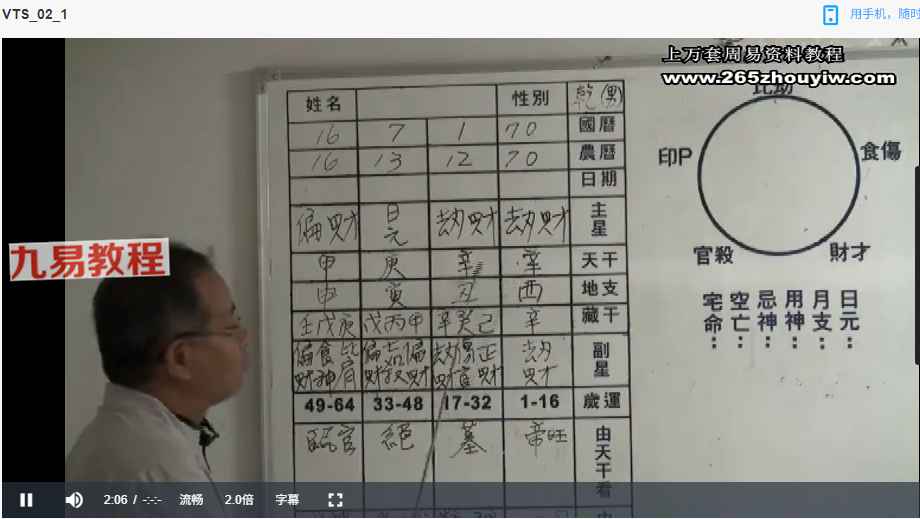 VTS_02_1
用手机，随时
上万套周易资料教程
www.265zhouyiw.com
九易教程
姓名 性別 乾(男)
16 7 1 70 國曆
16 13 12 70 農曆
日期
偏財 日元 劫財 劫財 主星
甲 庚 辛 辛 天干
申 寅 丑 酉 地支
壬戊庚 戊丙甲 辛癸己 辛 藏干
劫財 副星
49-64 33-48 17-32 1-16 歲運
臨官 絕 墓 帝旺 由天干看
比助
印P 食傷
官殺 財才
日元：
月支：
用神：
忌神：
空亡：
宅命：
2:06 / -:-:-
流畅 2.0倍 字幕